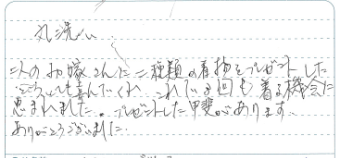 丸洗い
二人のお嫁さんに二種類の着物をプレゼントした
どちらも喜んでくれ これで3回も着る機会に
恵まれました。プレゼントした甲斐があります。
ありがとうございました。